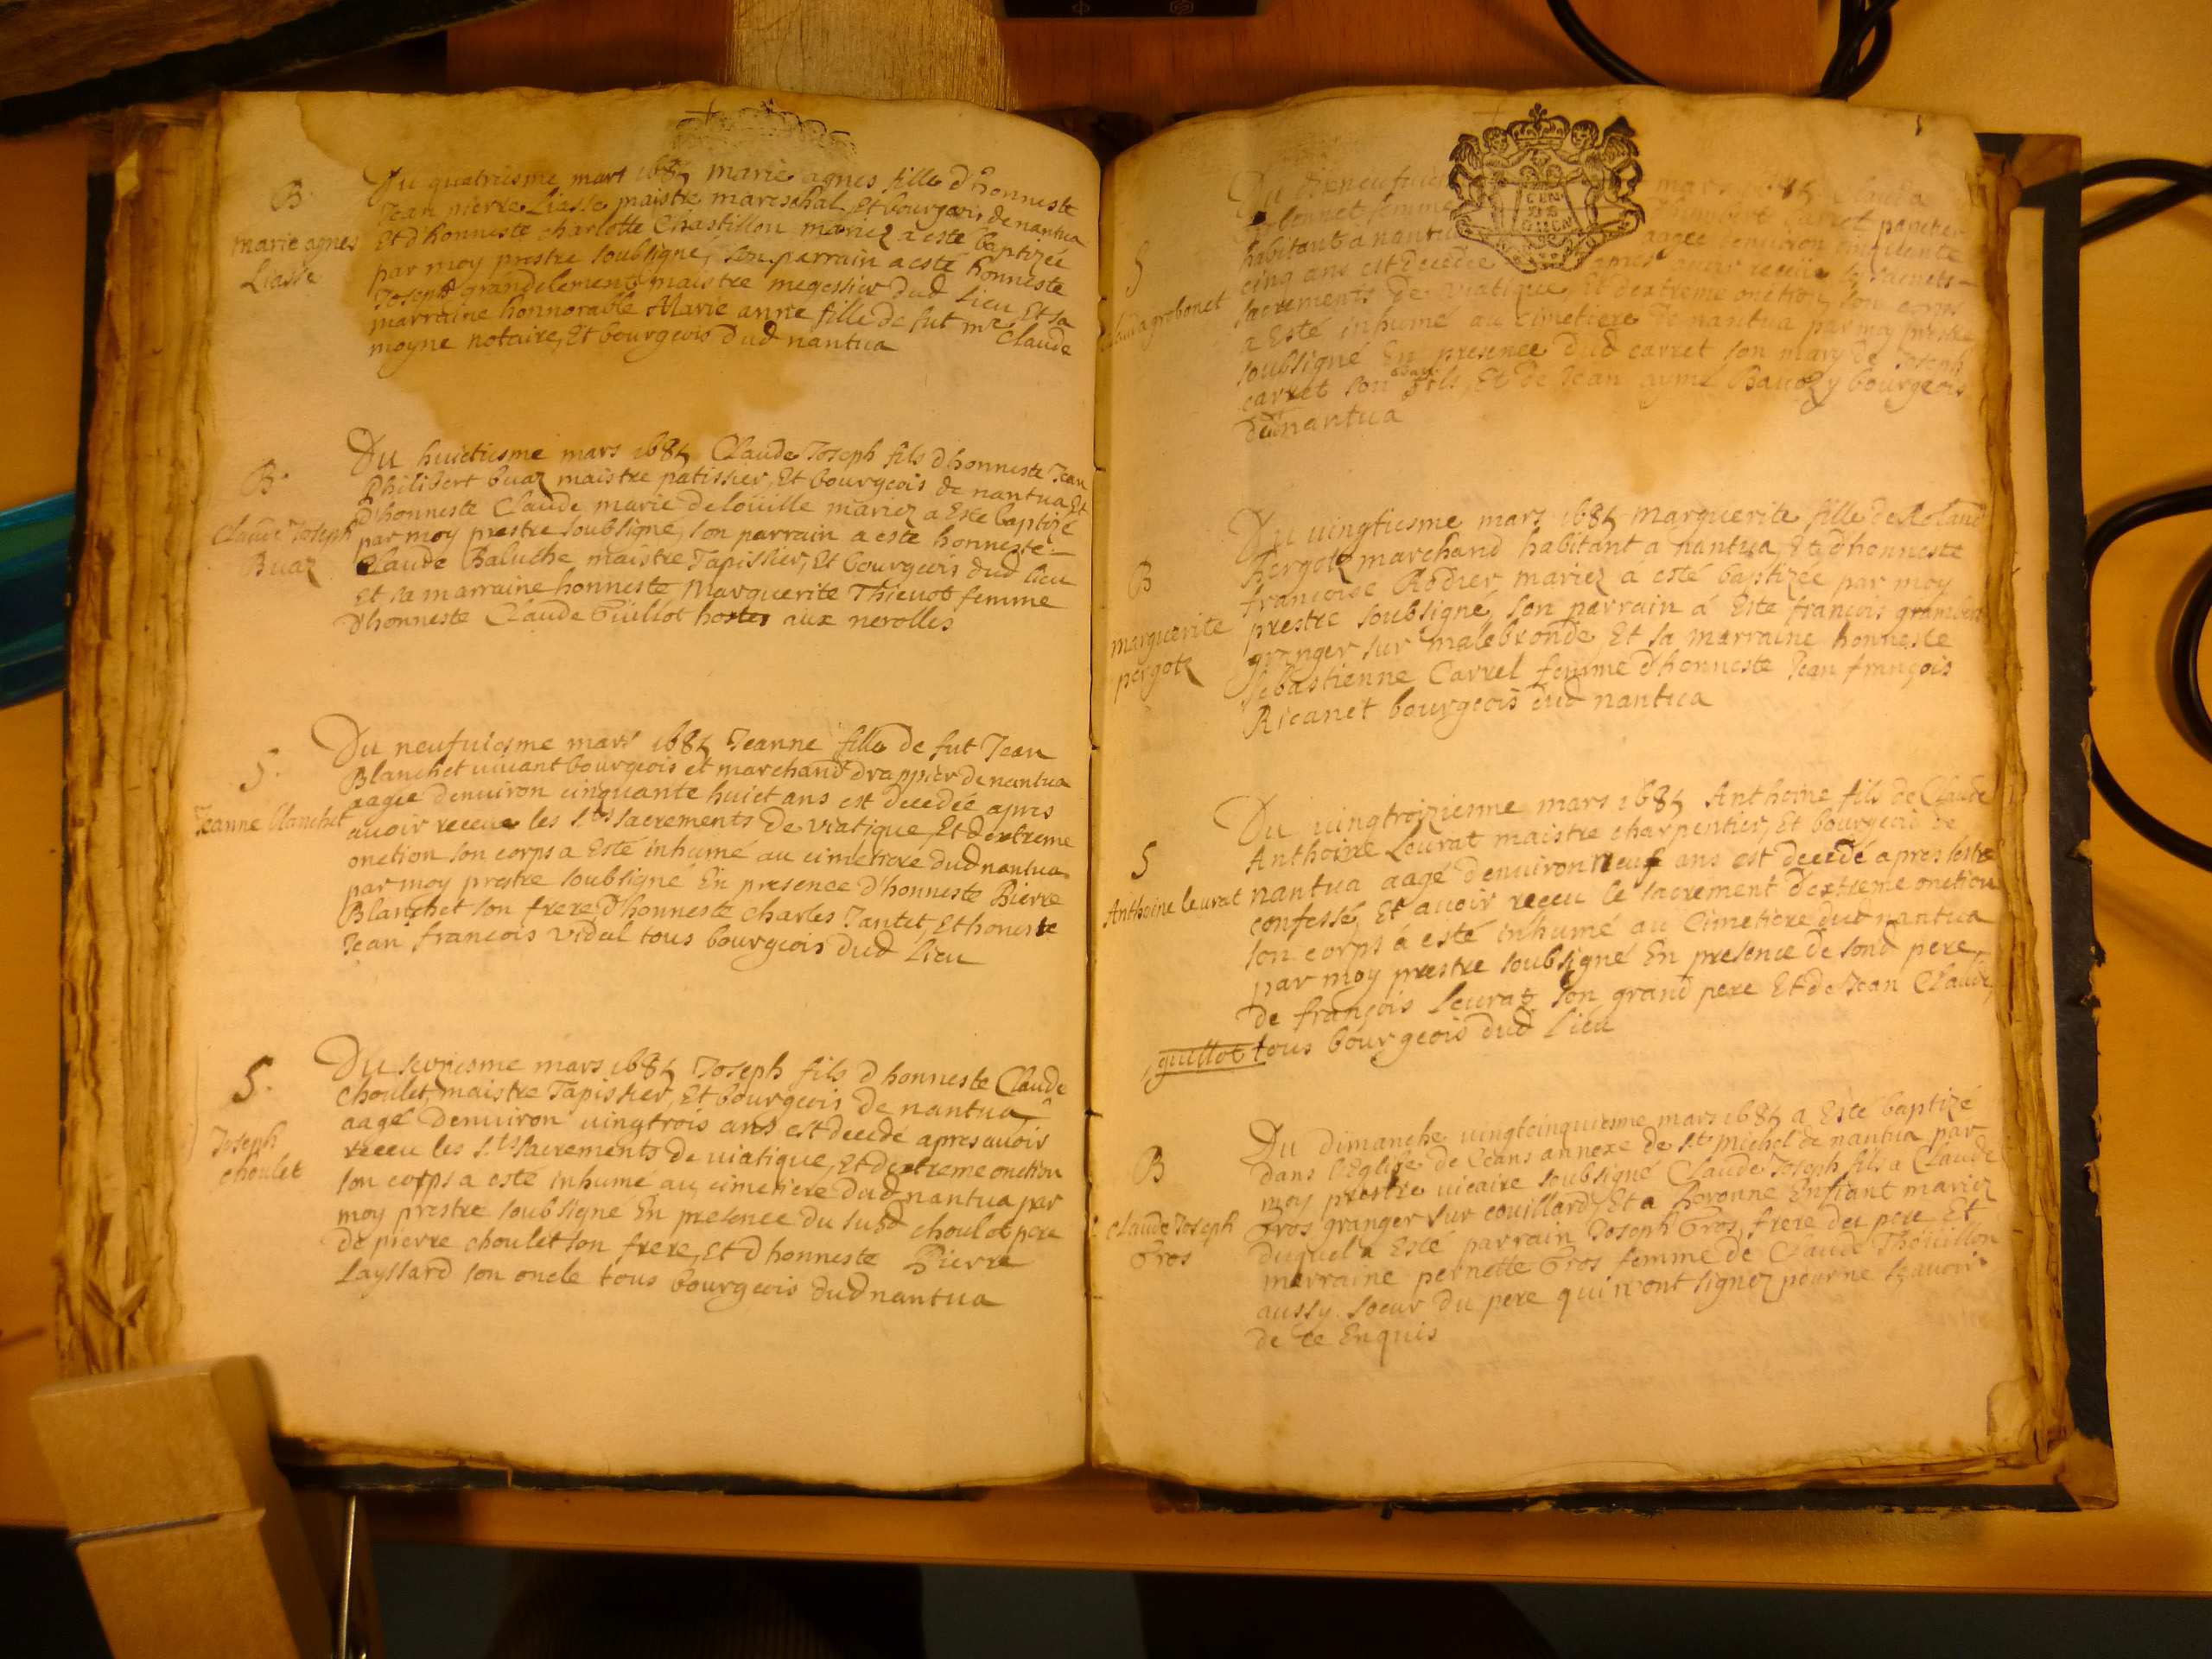 B.
marie agnes
Liasse
Du quatriesme mars 1685 marie agnes fille d'honneste
Jean pierre Liasse maistre mareschal, Et bourgeois de nantua
Et d'honneste charlotte Chastillon mariez a esté baptizée
par moy prestre soubsigné, son parrain a esté honneste
Joseph grandclement maistre megessier dud lieu Et sa
marraine honnorable Marie anne fille de fut mre Claude
moyne notaire, Et bourgeois dud nantua
B.
Claude Joseph
Buaz
Du huictiesme mars 1685 Claude Joseph fils d'honneste Jean
Philibert buaz maistre patissier, Et bourgeois de nantua Et
d'honneste Claude marie delouille mariez a Esté baptizé
par moy prestre soubsigné, son parrain a esté honneste
Claude Baluche maistre Tapissier, Et bourgeois dud lieu
Et sa marraine honneste Marguerite Thieuot femme
d'honneste Claude Guillot hostes aux nerolles
S.
Jeanne blanchet
Du neufuiesme mars 1685 Jeanne fille de fut Jean
Blanchet uiuant bourgeois et marchand drappier de nantua
aagée denuiron cinquante huict ans est decedée apres
auoir receue les sts sacrements de viatique, Et dextreme
onction son corps a Esté inhumé au cimetiere dud nantua
par moy prestre soubsigné En presence d'honneste Pierre
Blanchet son frere, d'honneste charles Jantet, Et honeste
Jean francois vidal tous bourgeois dud lieu
S.
Joseph
choulet
Du seziesme mars 1685 Joseph fils d honneste Claude
choulet, maistre Tapissier, Et bourgeois de nantua
aagé denuiron uingtrois ans est decedé apres auoir
receu les sts sacrements de uiatique, Et dextreme onction
son corps a esté inhumé au cimetiere dud nantua par
moy prestre soubsigné En presence du susd choulet pere
de pierre choulet son frere, Et d honneste Pierre
Layssard son oncle tous bourgeois dud nantua
S
grobonet
Du dixneufuies mars 1685 Clauda
grobonnet femme carret
habitant a nantua aagée denuiron cinquante
cinq ans est decedée apres auoir receüe les saincts
sacrements de viatique, Et dextreme onction, son corps
a Esté inhumé au cimetiere de nantua par moy prestre
soubsigné En presence dud carret son mary de Joseph
carret son beau fils, Et de Jean aymé Baudzy bourgeois
dud nantua
B
marguerite
pergotz
Du uingtiesme mars 1685 Marguerite fille de Roland
Pergotz marchand habitant a nantua, Et d'honneste
francoise Rodier mariez á esté baptizée par moy
prestre soubsigné, son parrain á Esté françois
granger sur malebronde, Et sa marraine honneste
Sebastienne Carrel femme d'honneste Jean françois
Ricanet bourgeois dud nantua
S
Anthoine leurat
Du uingtroizienne mars 1685 Anthoine fils de Claude
Anthoine Leurat maistre charpentier, Et bourgeois de
nantua aagé denuiron neuf ans est decedé apres sestre
confessé, Et auoir receu le sacrement dextreme onction
son corps á esté inhumé au Cimetiere dud nantua
par moy prestre soubsigné En presence de sond pere,
de françois Leurat son grand pere Et de Jean Claude
guillot tous bourgeois dud lieu
B
claude Joseph
Gros
Du dimanche uingtcinquiesme mars 1685 a Esté baptizé
dans l'Eglise de Ceans annexe de st michel de nantua par
moy prestre uicaire soubsigné Claude Joseph fils a Claude
Gros granger sur couillard, Et a Peronne Enfiant mariez
duquel a Esté parrain Joseph Gros frere du pere Et
marraine pernette Gros femme de Claude Thouillon
aussy soeur du pere qui n'ont signez pour ne sçauoir
de ce Enquis